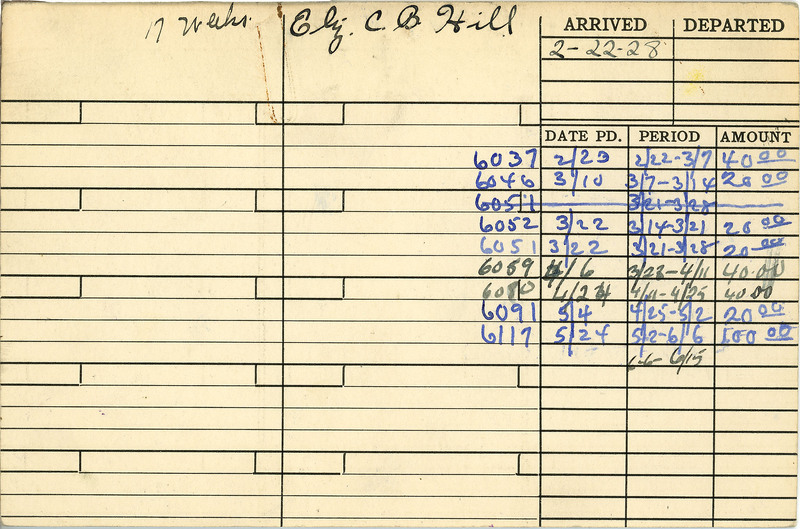 17 Weeks. Elz. C. B. Hill ARRIVED DEPARTED
2-22-28
DATE PD. PERIOD AMOUNT
6037 2/23 2/22-3/7 40 00
6046 3/10 3/7-3/14 20 00
6051 3/21-3/28
6052 3/22 3/14-3/21 20 00
6051 3/22 3/21-3/28 20 00
6059 4/6 3/28-4/11 40.00
6080 4/24 4/11-4/25 40.00
6091 5/4 4/25-5/2 20 00
6117 5/24 5/2-6/6 100 00
6/6-6/15